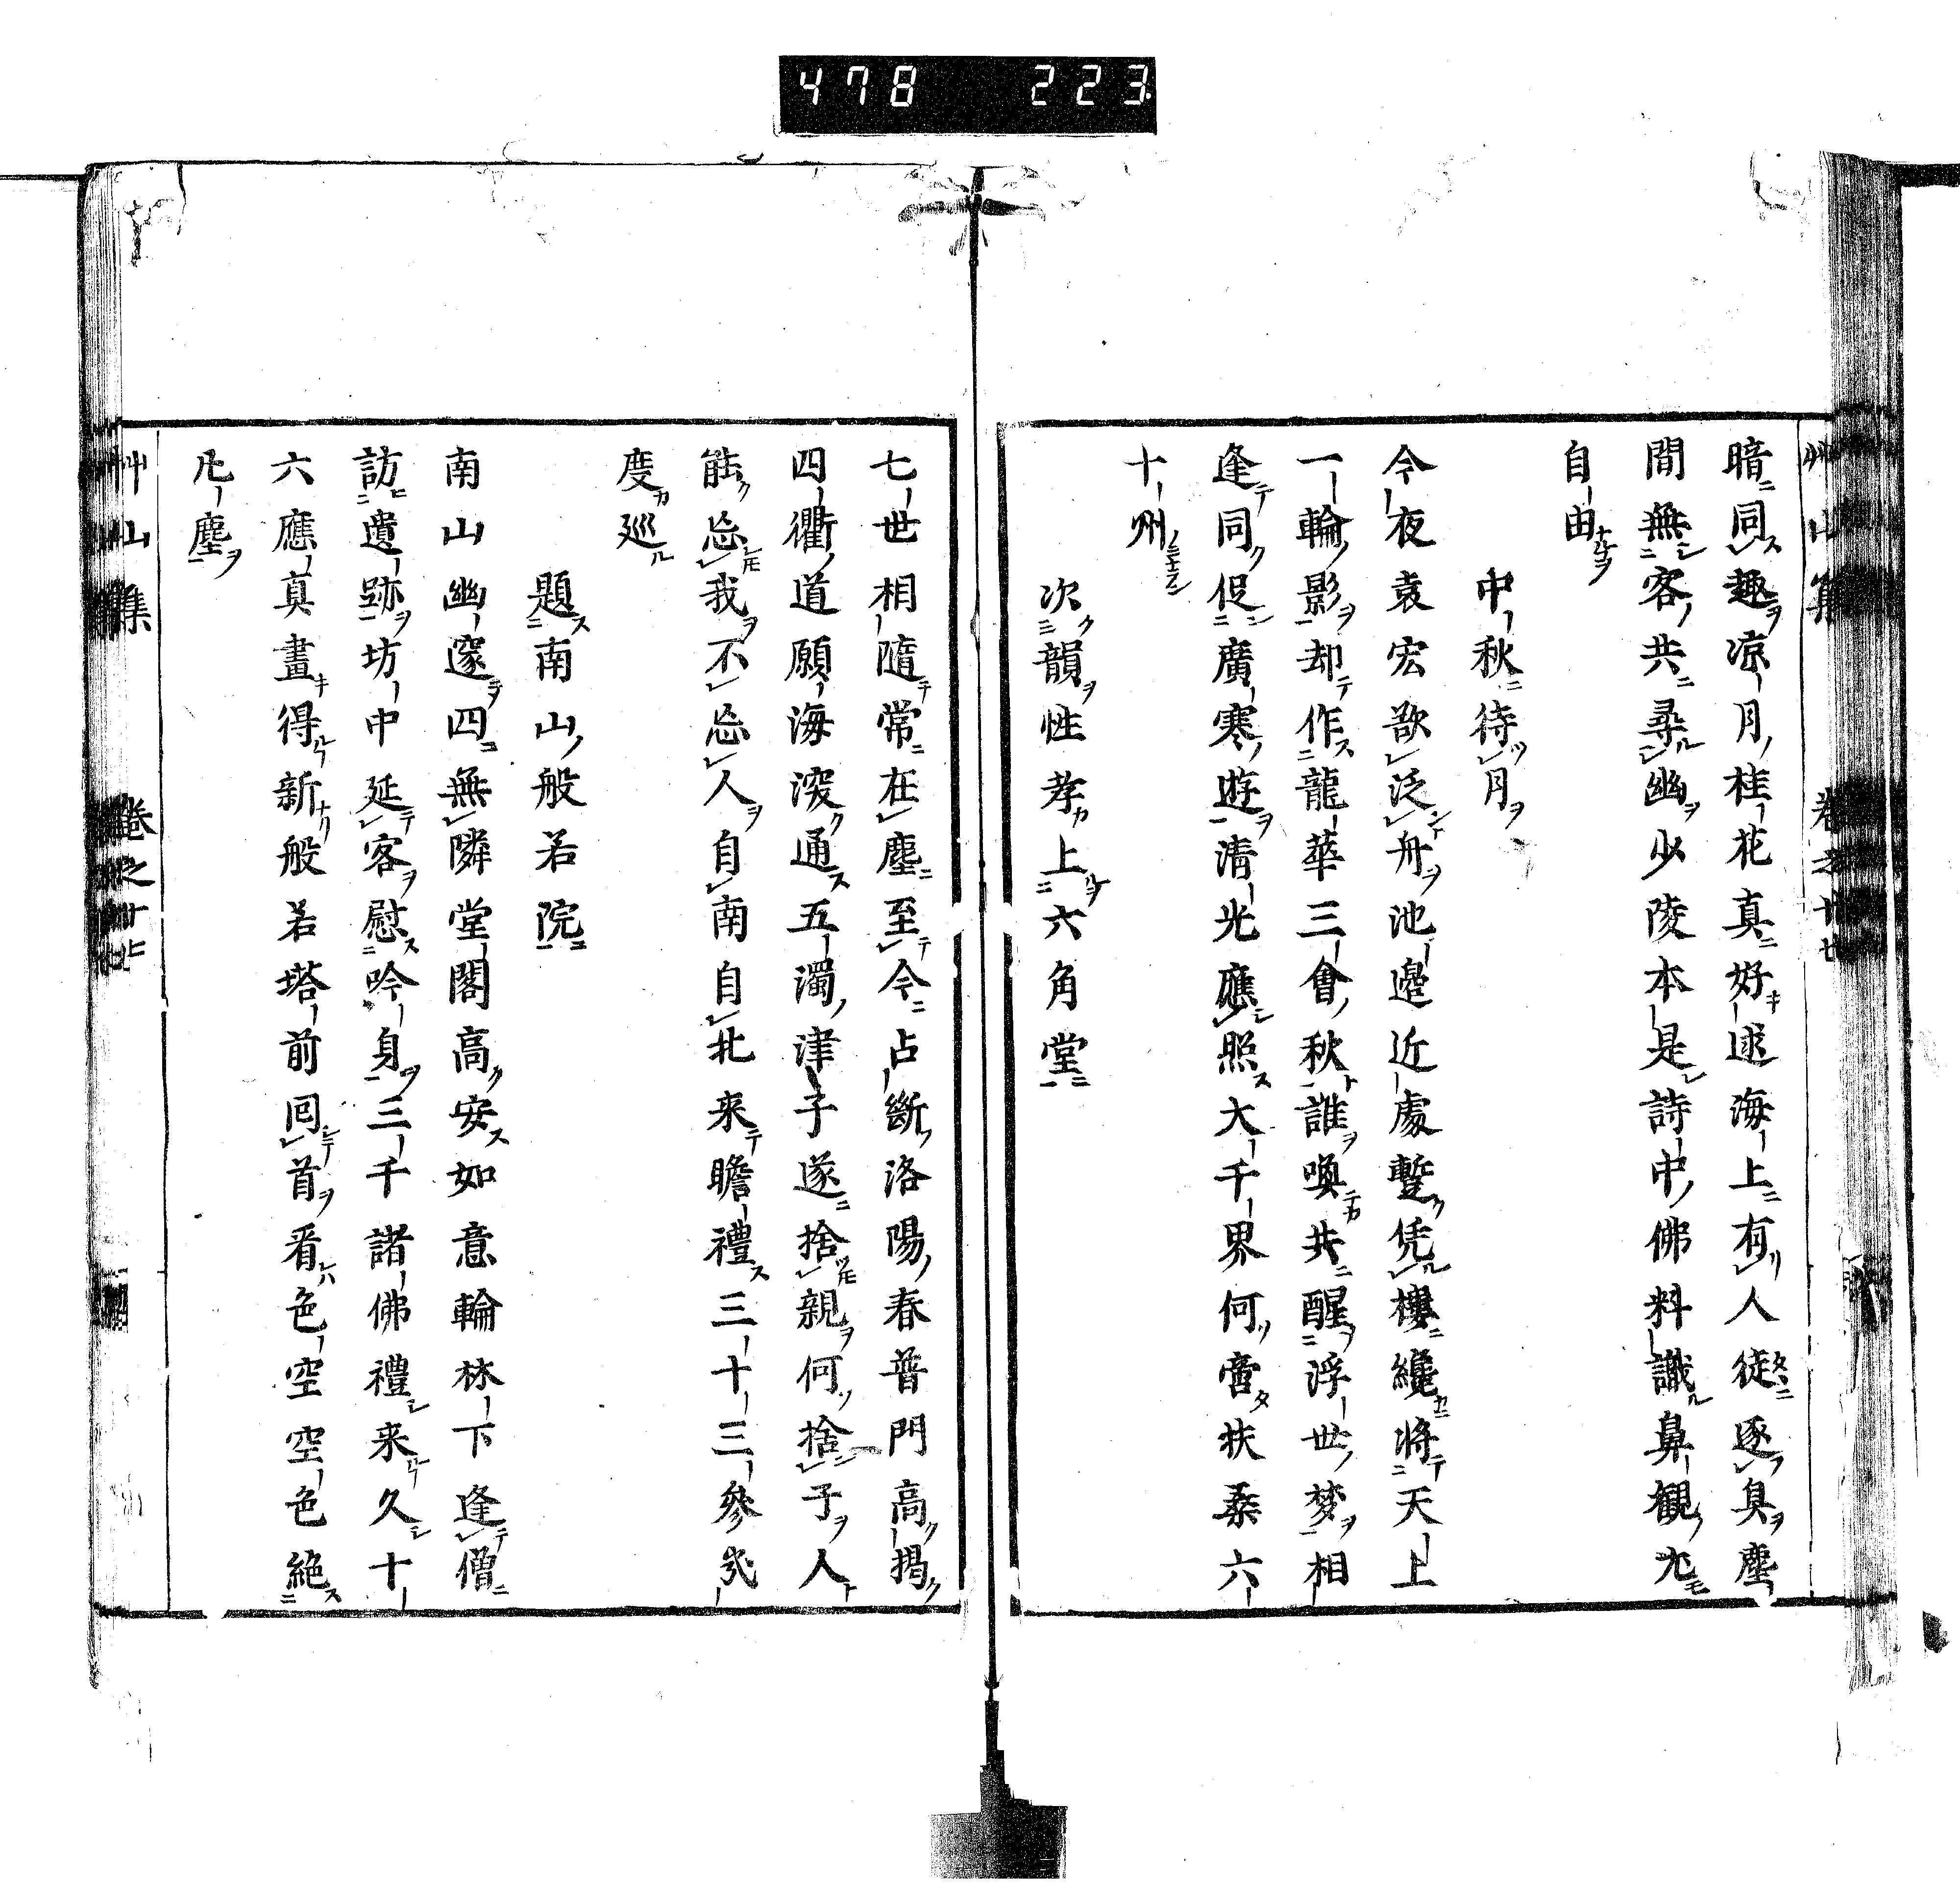 478 223
艸山集 卷之廿七
暗同趣凉月桂花真好逑海上有人徒逐臭塵
間無客共尋幽少陵本是詩中佛料識鼻觀尤
自由
中秋待月
今夜袁宏欲泛舟池邊近處暫凭樓纔將天上
一輪影却作龍華三會秋誰喚共醒浮世梦相
逢同促廣寒遊清光應照大千界何啻扶桒六
十州
次韻性孝上六角堂
七世相隨常在塵至今占斷洛陽春普門高揭
四衢道願海深通五濁津子遂捨親何捨子人
能忘我不忘人自南自北来瞻禮三十三參幾
度廵
題南山般若院
南山幽邃四無隣堂閣高安如意輪林下逢僧
訪遺跡坊中延客慰吟身三千諸佛禮来久十
六應真畫得新般若塔前囘首看色空空色絶
凡塵
艸山集 卷之廿七